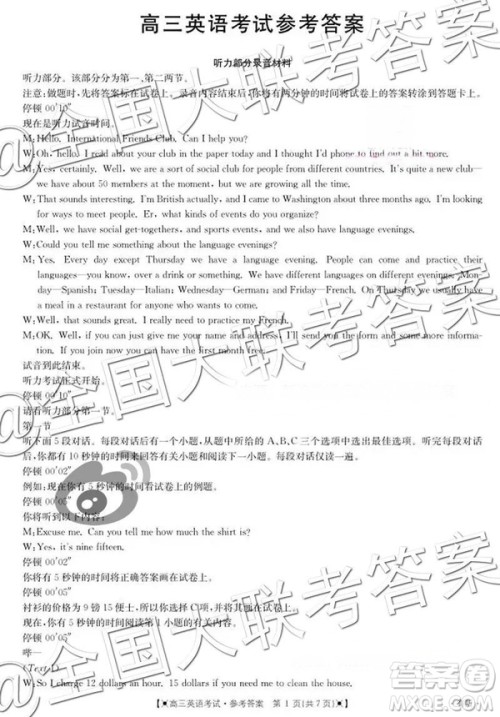 高三英语考试参考答案
听力部分录音材料
听力部分。该部分分为第一、第二两节。
注意:做题时,先将答案标在试卷上。录音内容结束后,你将有两分钟的时间将试卷上的答案转涂到答题卡上。
停顿 00′10″
现在是听力试音时间。
M:Hello. International Friends Club. Can I help you?
W:Oh, hello. I read about your club in the paper today and I thought I'd phone to find out a bit more.
M:Yes, certainly. Well, we are a sort of social club for people from different countries. It's quite a new club—
we have about 50 members at the moment, but we are growing all the time.
W:That sounds interesting. I'm British actually, and I came to Washington about three months ago. I'm looking
for ways to meet people. Er, what kinds of events do you organize?
M:Well, we have social get-togethers, and sports events, and we also have language evenings.
W:Could you tell me something about the language evenings?
M:Yes. Every day except Thursday we have a language evening. People can come and practice their
languages—you know, over a drink or something. We have different languages on different evenings. Mon-
day—Spanish; Tuesday—Italian; Wednesday—German; and Friday—French. On Thursday we usually have
a meal in a restaurant for anyone who wants to come.
W:Well, that sounds great. I really need to practice my French.
M:OK. Well, if you can just give me your name and address, I'll send you the form and some more infor-
mation. If you join now you can have the first month free.
试音到此结束。
听力考试正式开始。
停顿 00′10″
请看听力部分第一节。
第一节
听下面 5 段对话。每段对话后有一个小题,从题中所给的 A、B、C 三个选项中选出最佳选项。听完每段对话后,
你都有 10 秒钟的时间来回答有关小题和阅读下一小题。每段对话仅读一遍。
停顿 00′02″
例如:现在你有 5 秒钟的时间看试卷上的例题。
停顿 00′05″
你将听到以下内容:
M:Excuse me. Can you tell me how much the shirt is?
W:Yes, it's nine fifteen.
停顿 00′02″
你有 5 秒钟的时间将正确答案画在试卷上。
停顿 00′05″
衬衫的价格为 9 镑 15 便士,所以你选择 C项,并将其标在试卷上。
现在,你有 5 秒钟的时间阅读第 1 小题的有关内容。
停顿 00′05″
哔—
(Text 1)
W:So I charge 12 dollars an hour. That means it would be 15 dollars to clean the house.
【高三英语考试·参考答案 第 1 页(共 7 页)】
@全国大联考答案